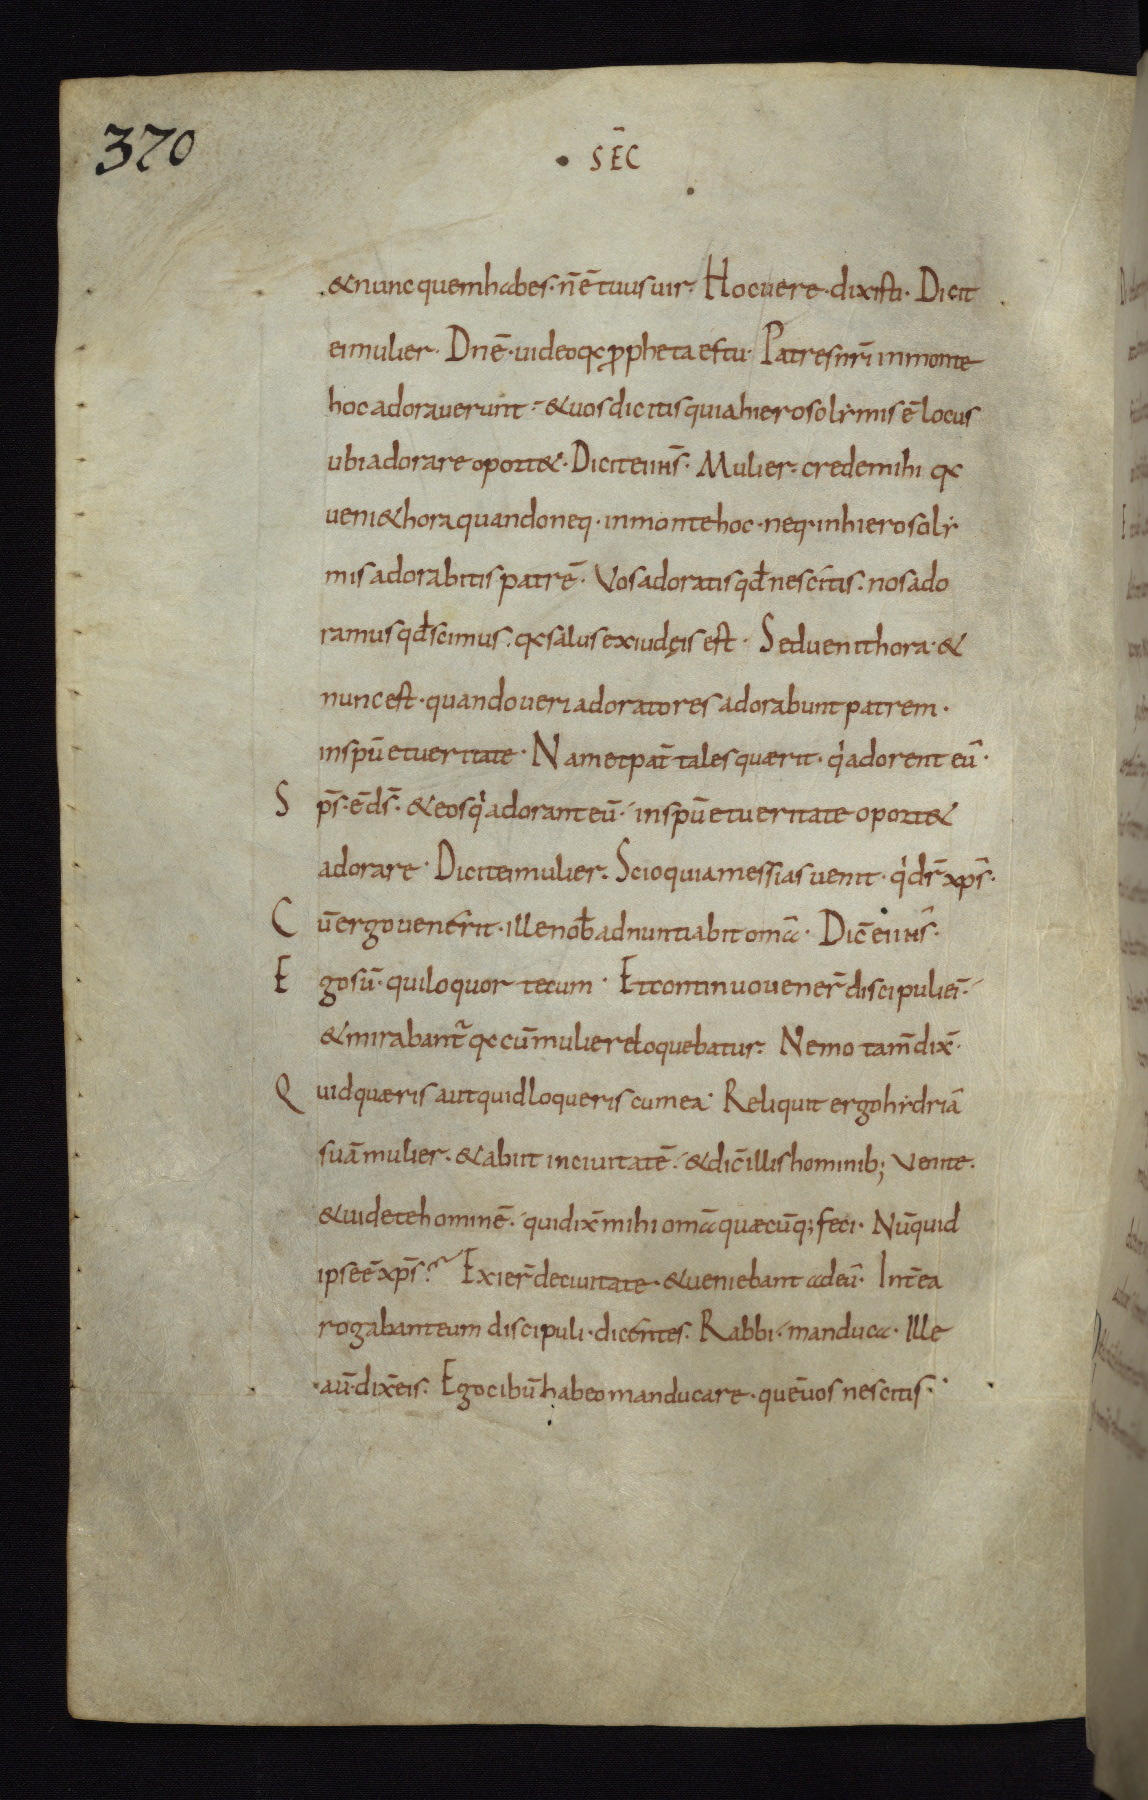 370
SĒC
& nunc quem habes· n̄ ē tuus uir· Hoc uere· dixisti· Dicit
ei mulier· Dn̄e· uideo qȝ ꝓpheta es tu· Patres nr̄i in monte
hoc adorauerunt· & uos dicitis quia hierosolymis ē locus
ubi adorare oport&· Dicit ei ih̄s· Mulier· crede mihi qȝ
ueni& hora quando neq· in monte hoc· neq· in hierosoly
mis adorabitis patrē· Vos adoratis qđ nescitis· nos ado
ramus qđ scimus· qȝ salus ex iudęis est· Sed uenit hora· &
nunc est· quando ueri adoratores adorabunt patrem·
in spū et ueritate· Nam et pat̄ tales quærit· qi adorent eū·
S pc̄s· ē ds̄· & eos qi adorant eū· in spū et ueritate oport&
adorare· Dicit ei mulier· Scio quia messias uenit· qi dr̄ xps̄·
C ū ergo uenerit· ille nob̄ adnuntiabit om̄a· Dic̄ ei ih̄s·
E go sū· qui loquor tecum· Et continuo uener̄ discipuli ei·
& mirabant̄ qȝ cū muliere loquebatur· Nemo tam̄ dix̄·
Q uid quæris aut quid loqueris cum ea· Reliquit ergo hydriā
suā mulier· & abiit in ciuitatē· & dic̄ illis hominib; Venite·
& uidete hominē· qui dix̄ mihi om̄a quæcūq; feci· Nūquid
ipse ē xps̄? Exier̄ de ciuitate· & ueniebant ad eū· Int̄ea
rogabant eum discipuli· dicentes· Rabbi· manduca· Ille
au̅· dix̄ eis· Ego cibū habeo manducare· quē uos nescitis·